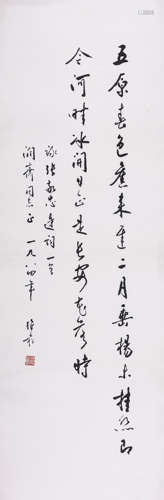 五原春色旧来迟二月垂杨未挂丝即
今河畔冰开日正是长安花落时
录张敬忠边词一首
同志正 一九八四年